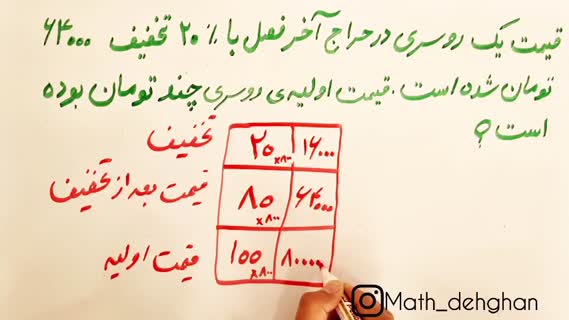 قیمت یک روسری در حراج آخر فصل با ٪۲۰ تخفیف ۶۴۰۰۰
تومان شده است . قیمت اولیه‌ی روسری چند تومان بوده
است ؟
تخفیف ۲۰ ×۸۰۰ ۱۶۰۰۰
قیمت بعد از تخفیف ۸۰ ×۸۰۰ ۶۴۰۰۰
قیمت اولیه ۱۰۰ ×۸۰۰ ۸۰۰۰۰
Math_dehghan